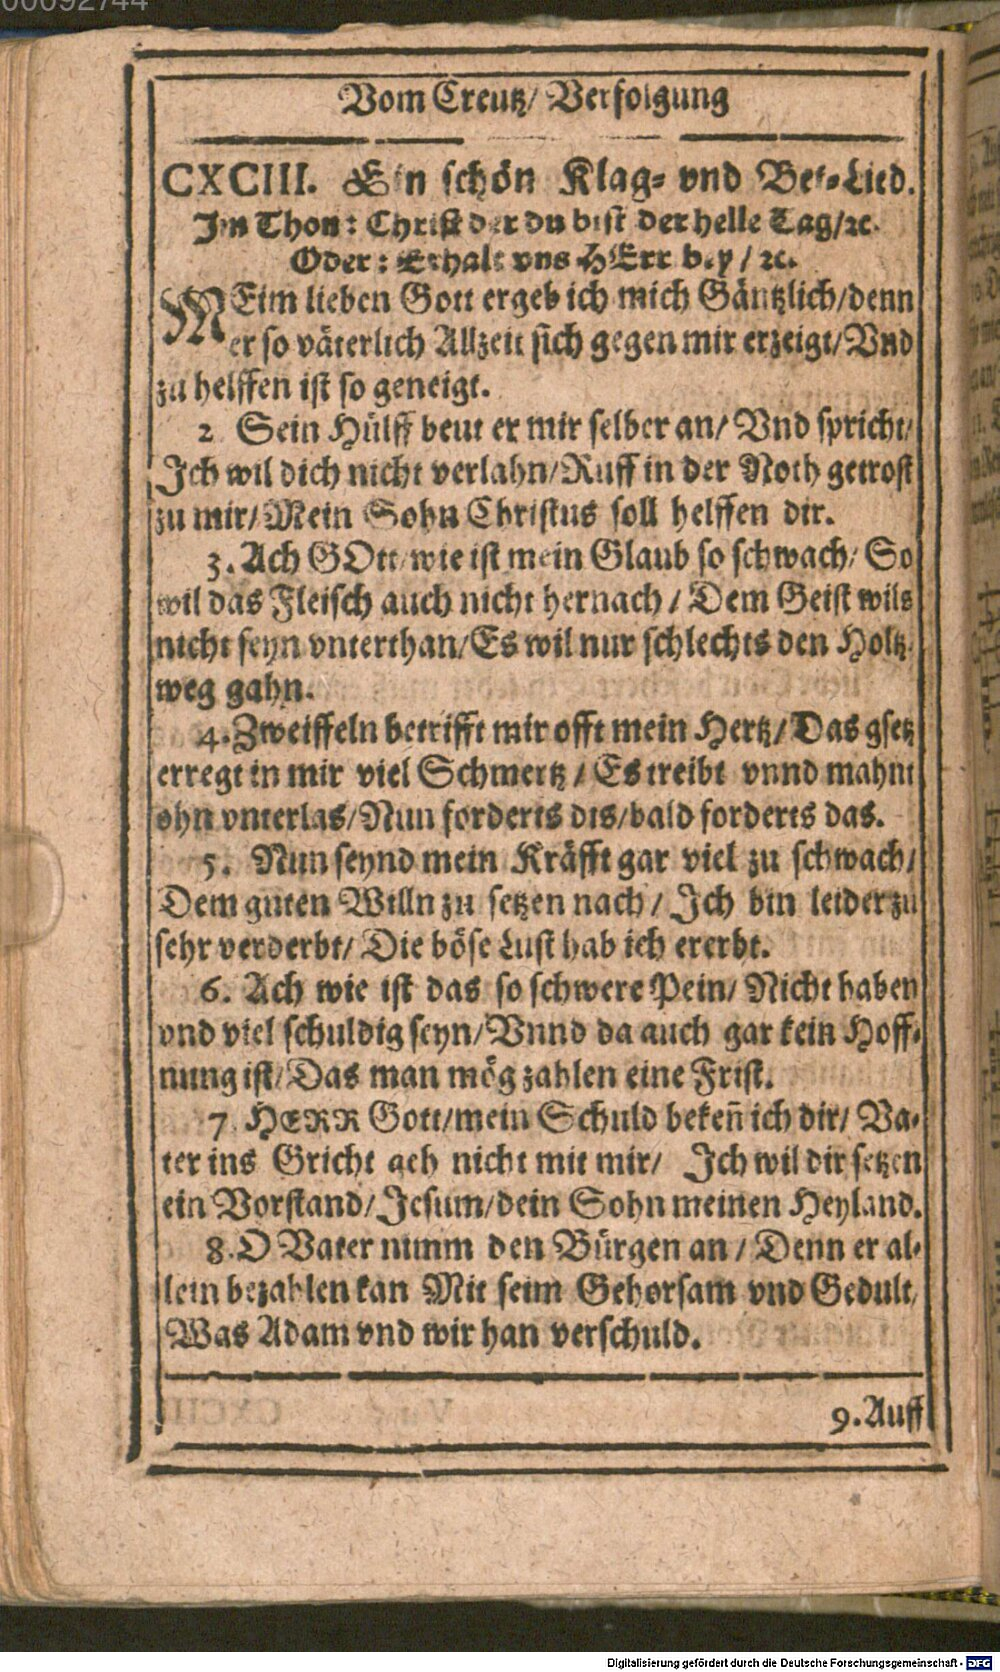 00692744
Vom Creutz/ Verfolgung
CXCIII. Ein schön Klag- vnd Bet-Lied.
Im Thon: Christ der du bist der helle Tag/ꝛc.
Oder: Erhalt vns HErr bey/ ꝛc.
MEim lieben Gott ergeb ich mich Gäntzlich/denn
er so väterlich Allzeit sich gegen mir erzeigt/Vnd
zu helffen ist so geneigt.
2. Sein Hülff beut er mir selber an/ Vnd spricht/
Ich wil dich nicht verlahn/Ruff in der Noth getrost
zu mir/Mein Sohn Christus soll helffen dir.
3. Ach GOtt/wie ist mein Glaub so schwach/ So
wil das Fleisch auch nicht hernach/ Dem Geist wils
nicht seyn vnterthan/Es wil nur schlechts den Holtz-
weg gahn.
4. Zweiffeln betrifft mir offt mein Hertz/Das gsetz
erregt in mir viel Schmertz/ Es treibt vnnd mahnt
ohn vnterlas/Nun forderts dis/bald forderts das.
5. Nun seynd mein Kräfft gar viel zu schwach/
Dem guten Willn zu setzen nach/ Ich bin leider zu
sehr verderbt/ Die böse Lust hab ich ererbt.
6. Ach wie ist das so schwere Pein/ Nicht haben
vnd viel schuldig seyn/Vnnd da auch gar kein Hoff-
nung ist/Das man mög zahlen eine Frist.
7. HERR Gott/mein Schuld bekeñ ich dir/ Va-
ter ins Gricht geh nicht mit mir/ Ich wil dir setzen
ein Vorstand/Jesum/dein Sohn meinen Heyland.
8. O Vater nimm den Bürgen an/ Denn er al-
lein bezahlen kan Mit seim Gehorsam vnd Gedult/
Was Adam vnd wir han verschuld.
9. Auff
Digitalisierung gefördert durch die Deutsche Forschungsgemeinschaft - DFG